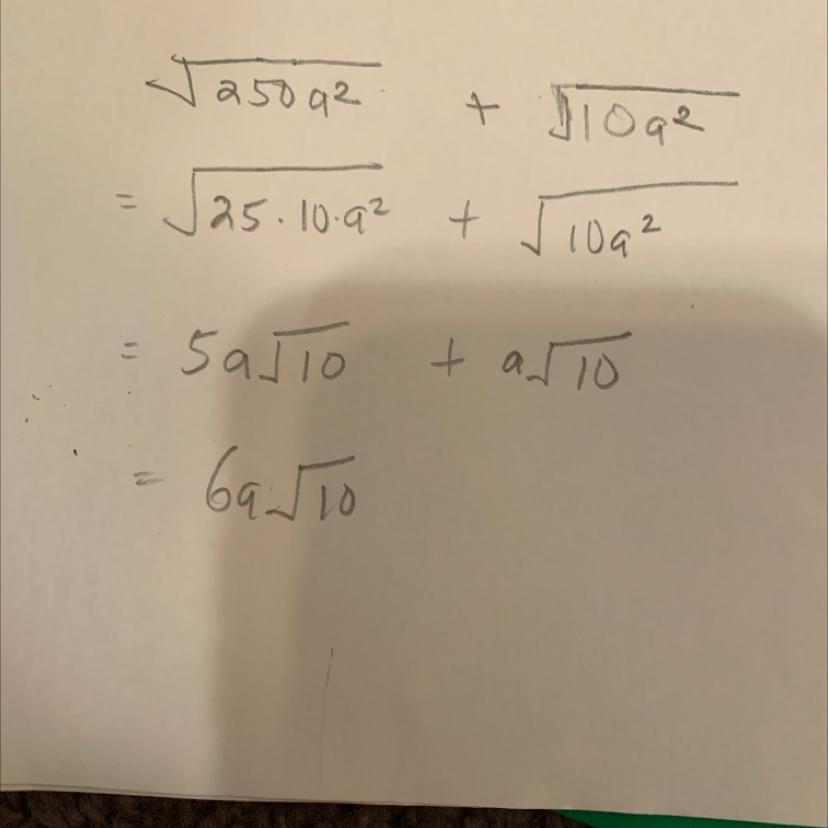 √250a² + √10a²
= √25·10·a² + √10a²
= 5a√10 + a√10
= 6a√10